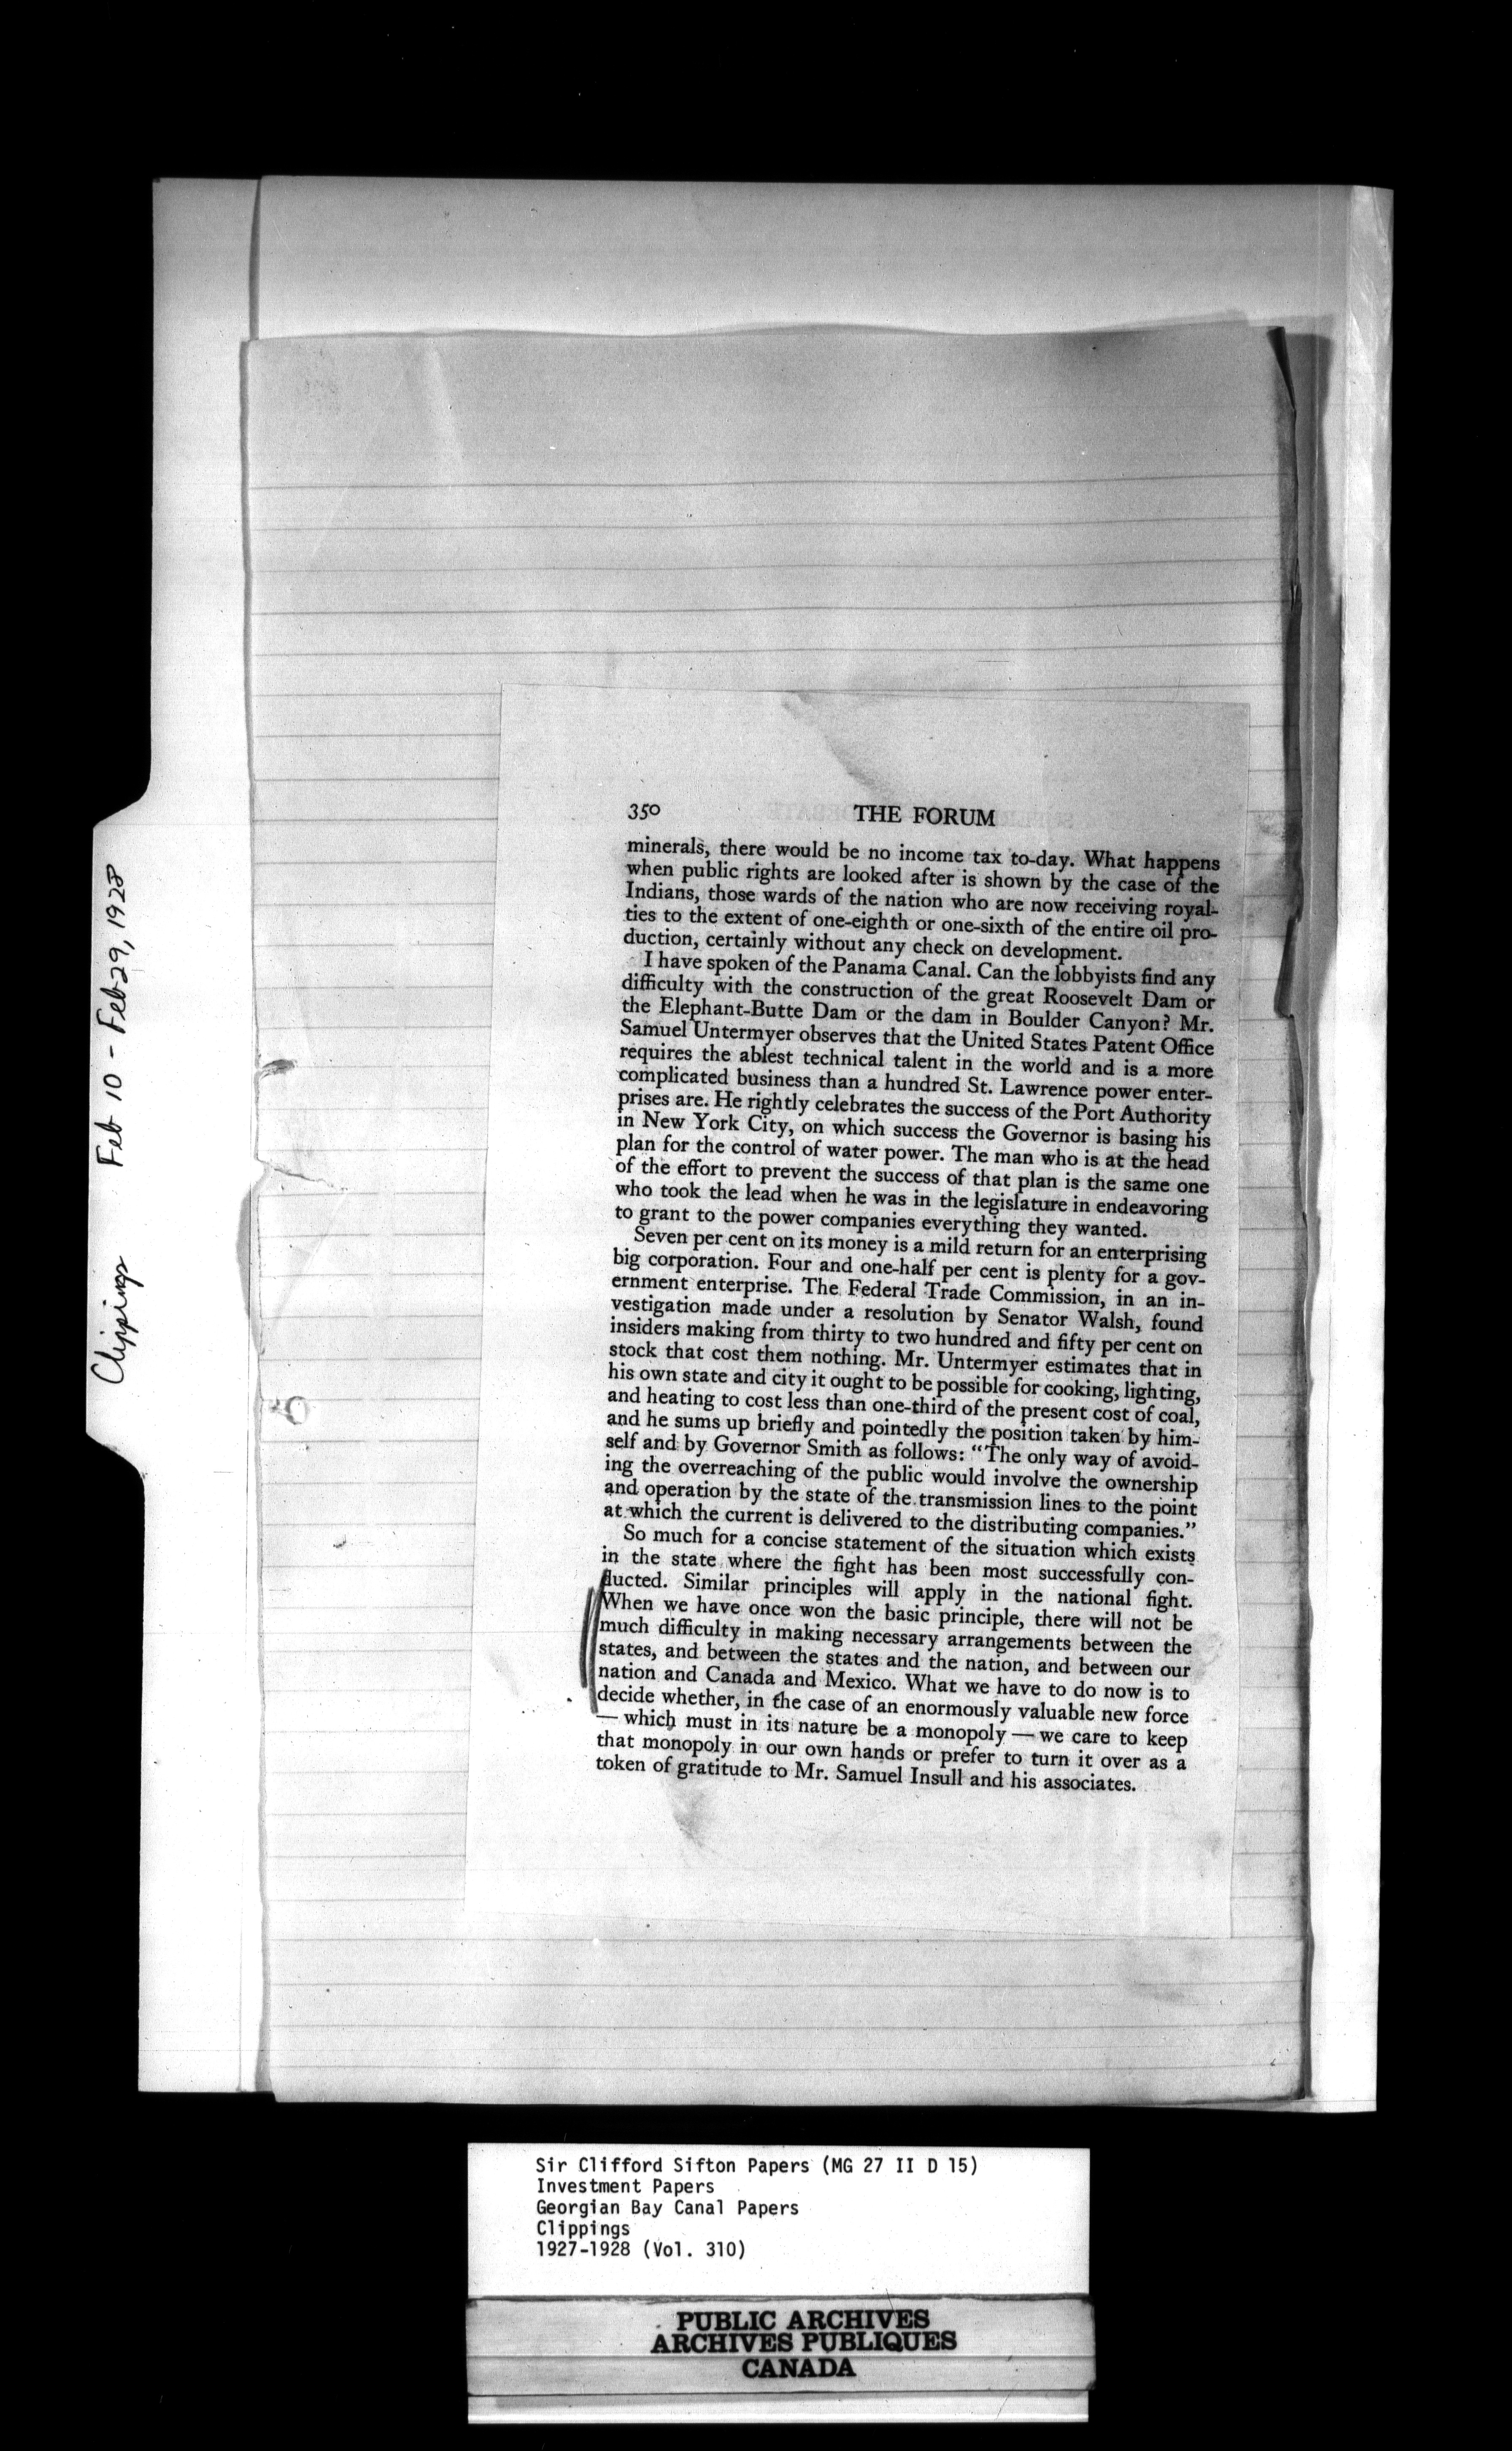 Clippings Feb 10 - Feb 29, 1928
350 THE FORUM
minerals, there would be no income tax to-day. What happens
when public rights are looked after is shown by the case of the
Indians, those wards of the nation who are now receiving royal-
ties to the extent of one-eighth or one-sixth of the entire oil pro-
duction, certainly without any check on development.
I have spoken of the Panama Canal. Can the lobbyists find any
difficulty with the construction of the great Roosevelt Dam or
the Elephant-Butte Dam or the dam in Boulder Canyon? Mr.
Samuel Untermyer observes that the United States Patent Office
requires the ablest technical talent in the world and is a more
complicated business than a hundred St. Lawrence power enter-
prises are. He rightly celebrates the success of the Port Authority
in New York City, on which success the Governor is basing his
plan for the control of water power. The man who is at the head
of the effort to prevent the success of that plan is the same one
who took the lead when he was in the legislature in endeavoring
to grant to the power companies everything they wanted.
Seven per cent on its money is a mild return for an enterprising
big corporation. Four and one-half per cent is plenty for a gov-
ernment enterprise. The Federal Trade Commission, in an in-
vestigation made under a resolution by Senator Walsh, found
insiders making from thirty to two hundred and fifty per cent on
stock that cost them nothing. Mr. Untermyer estimates that in
his own state and city it ought to be possible for cooking, lighting,
and heating to cost less than one-third of the present cost of coal,
and he sums up briefly and pointedly the position taken by him-
self and by Governor Smith as follows: “The only way of avoid-
ing the overreaching of the public would involve the ownership
and operation by the state of the transmission lines to the point
at which the current is delivered to the distributing companies.”
So much for a concise statement of the situation which exists
in the state where the fight has been most successfully con-
ducted. Similar principles will apply in the national fight.
When we have once won the basic principle, there will not be
much difficulty in making necessary arrangements between the
states, and between the states and the nation, and between our
nation and Canada and Mexico. What we have to do now is to
decide whether, in the case of an enormously valuable new force
— which must in its nature be a monopoly — we care to keep
that monopoly in our own hands or prefer to turn it over as a
token of gratitude to Mr. Samuel Insull and his associates.
Sir Clifford Sifton Papers (MG 27 II D 15)
Investment Papers
Georgian Bay Canal Papers
Clippings
1927-1928 (Vol. 310)
PUBLIC ARCHIVES
ARCHIVES PUBLIQUES
CANADA